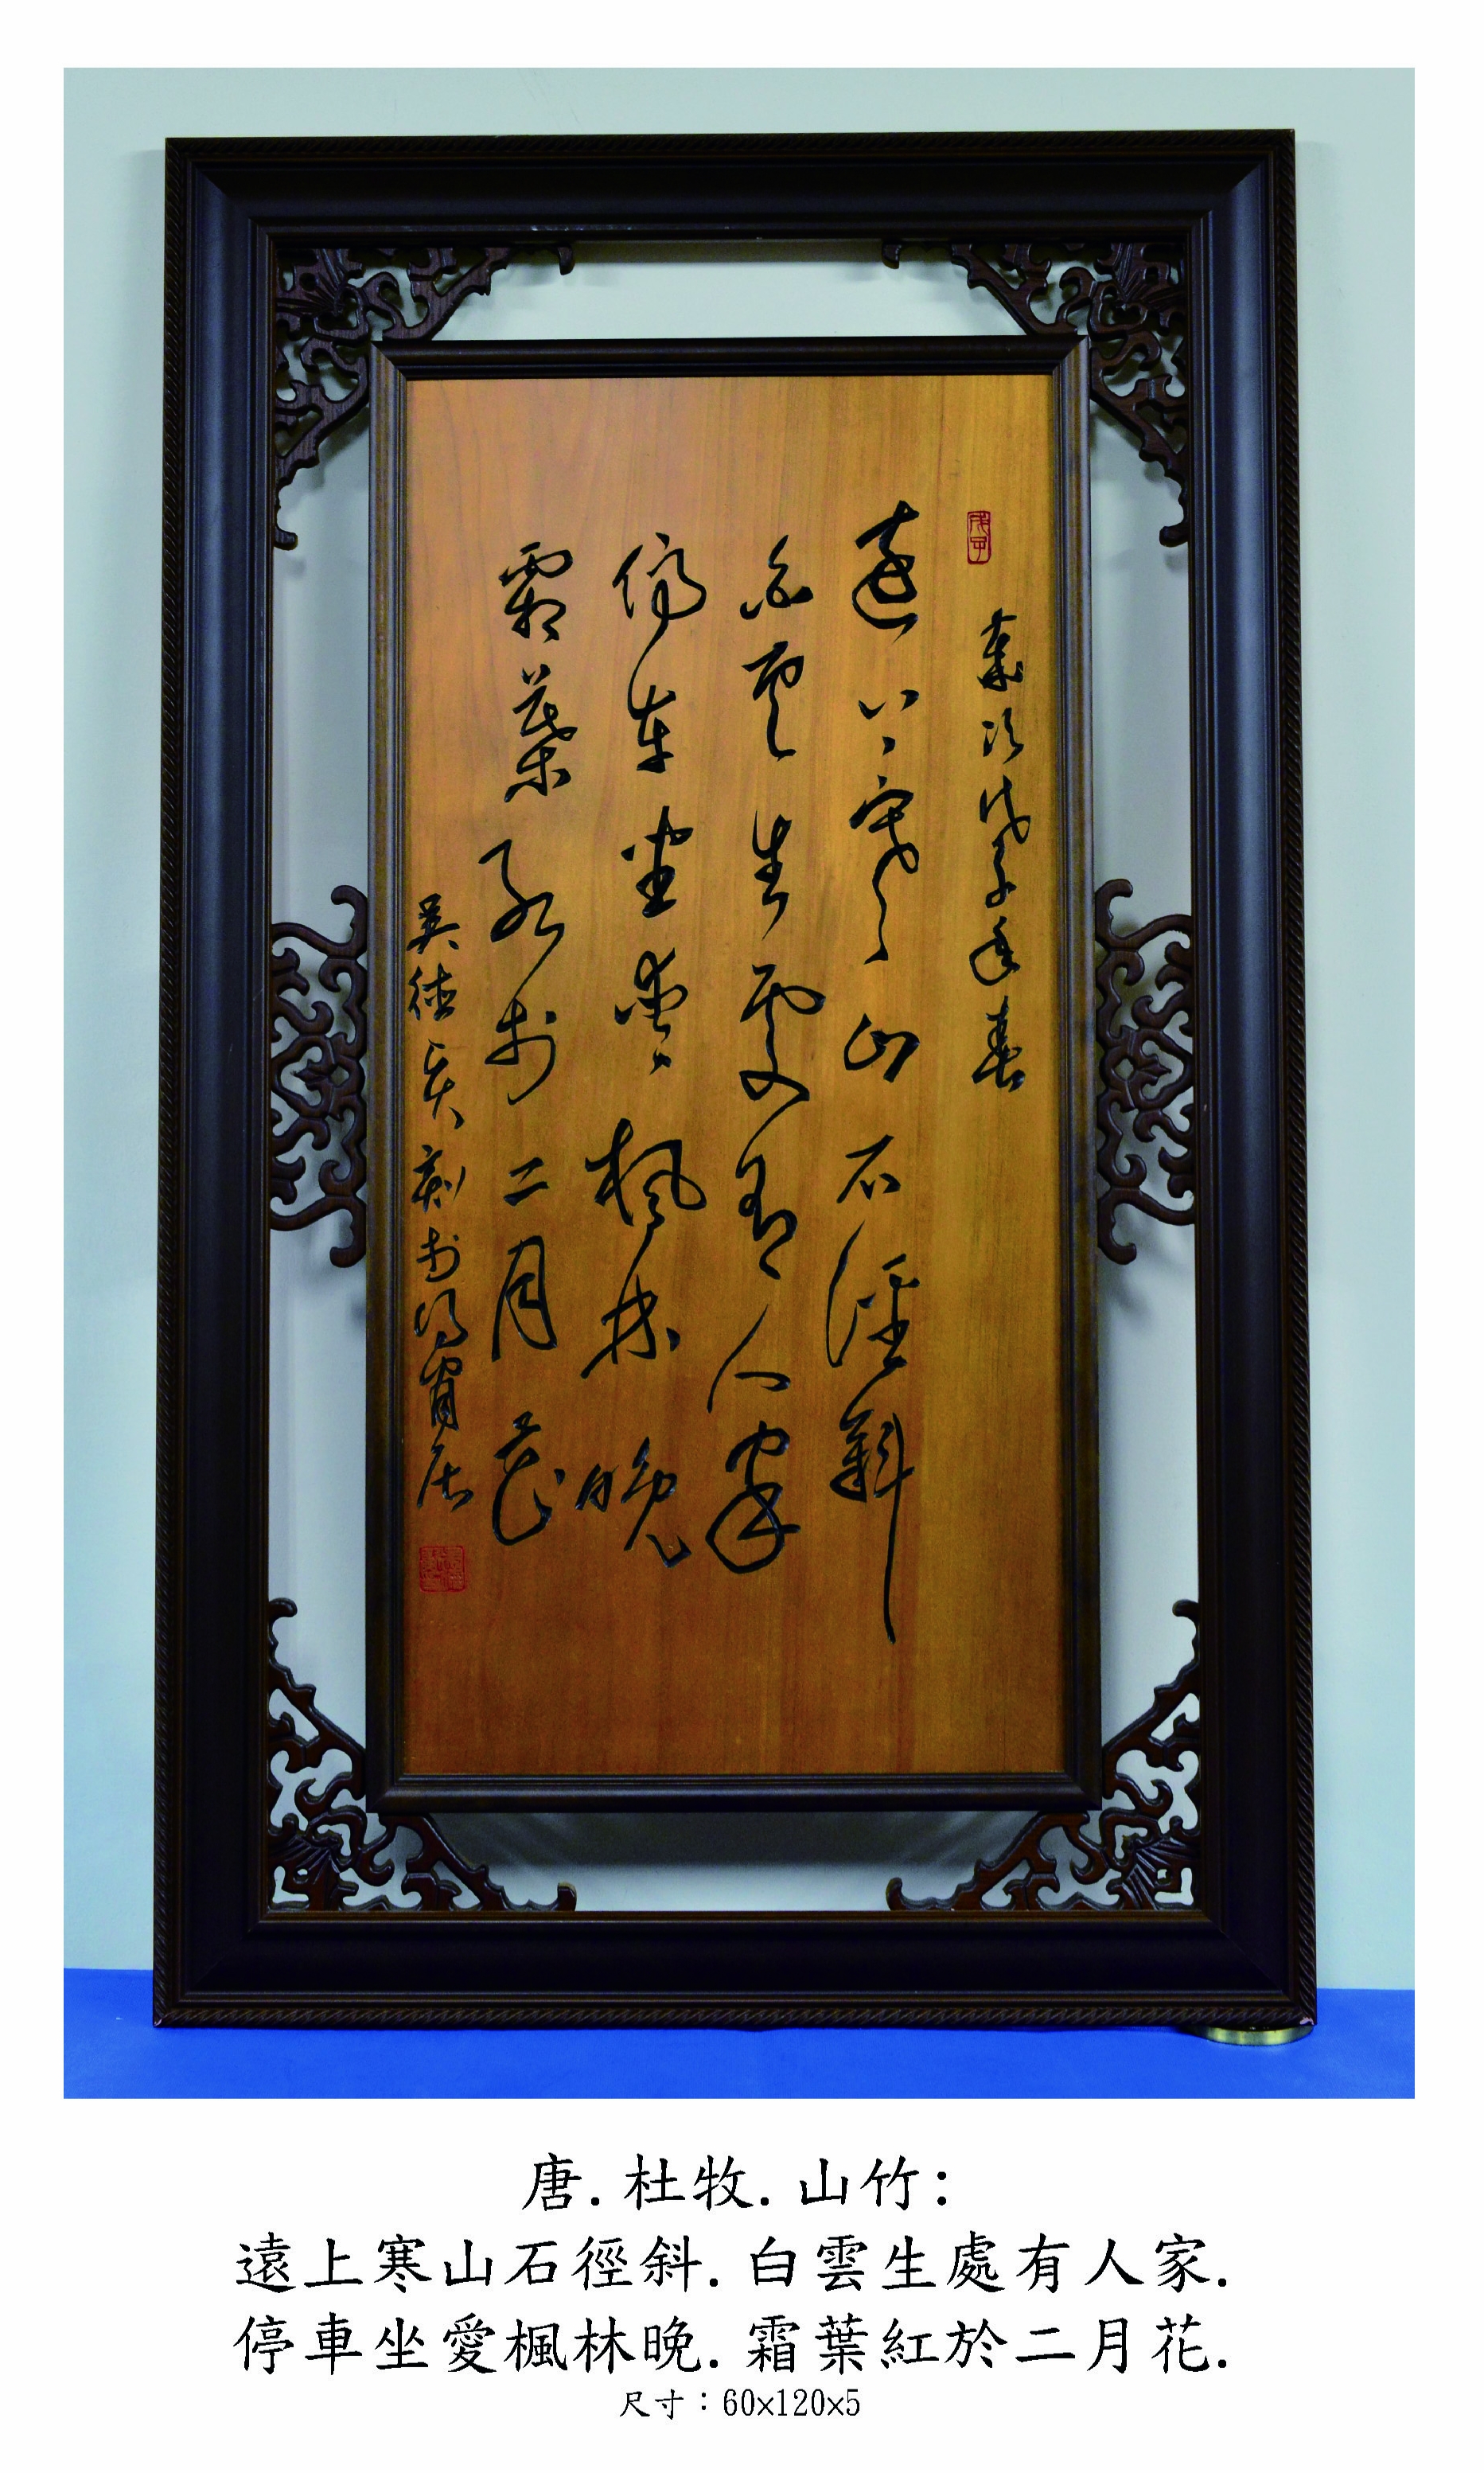 歲次戊子年春
遠上寒山石徑斜
白雲生處有人家
停車坐愛楓林晚
霜葉紅於二月花
戊子
唐.杜牧.山竹:
遠上寒山石徑斜.白雲生處有人家.
停車坐愛楓林晚.霜葉紅於二月花.
尺寸：60x120x5